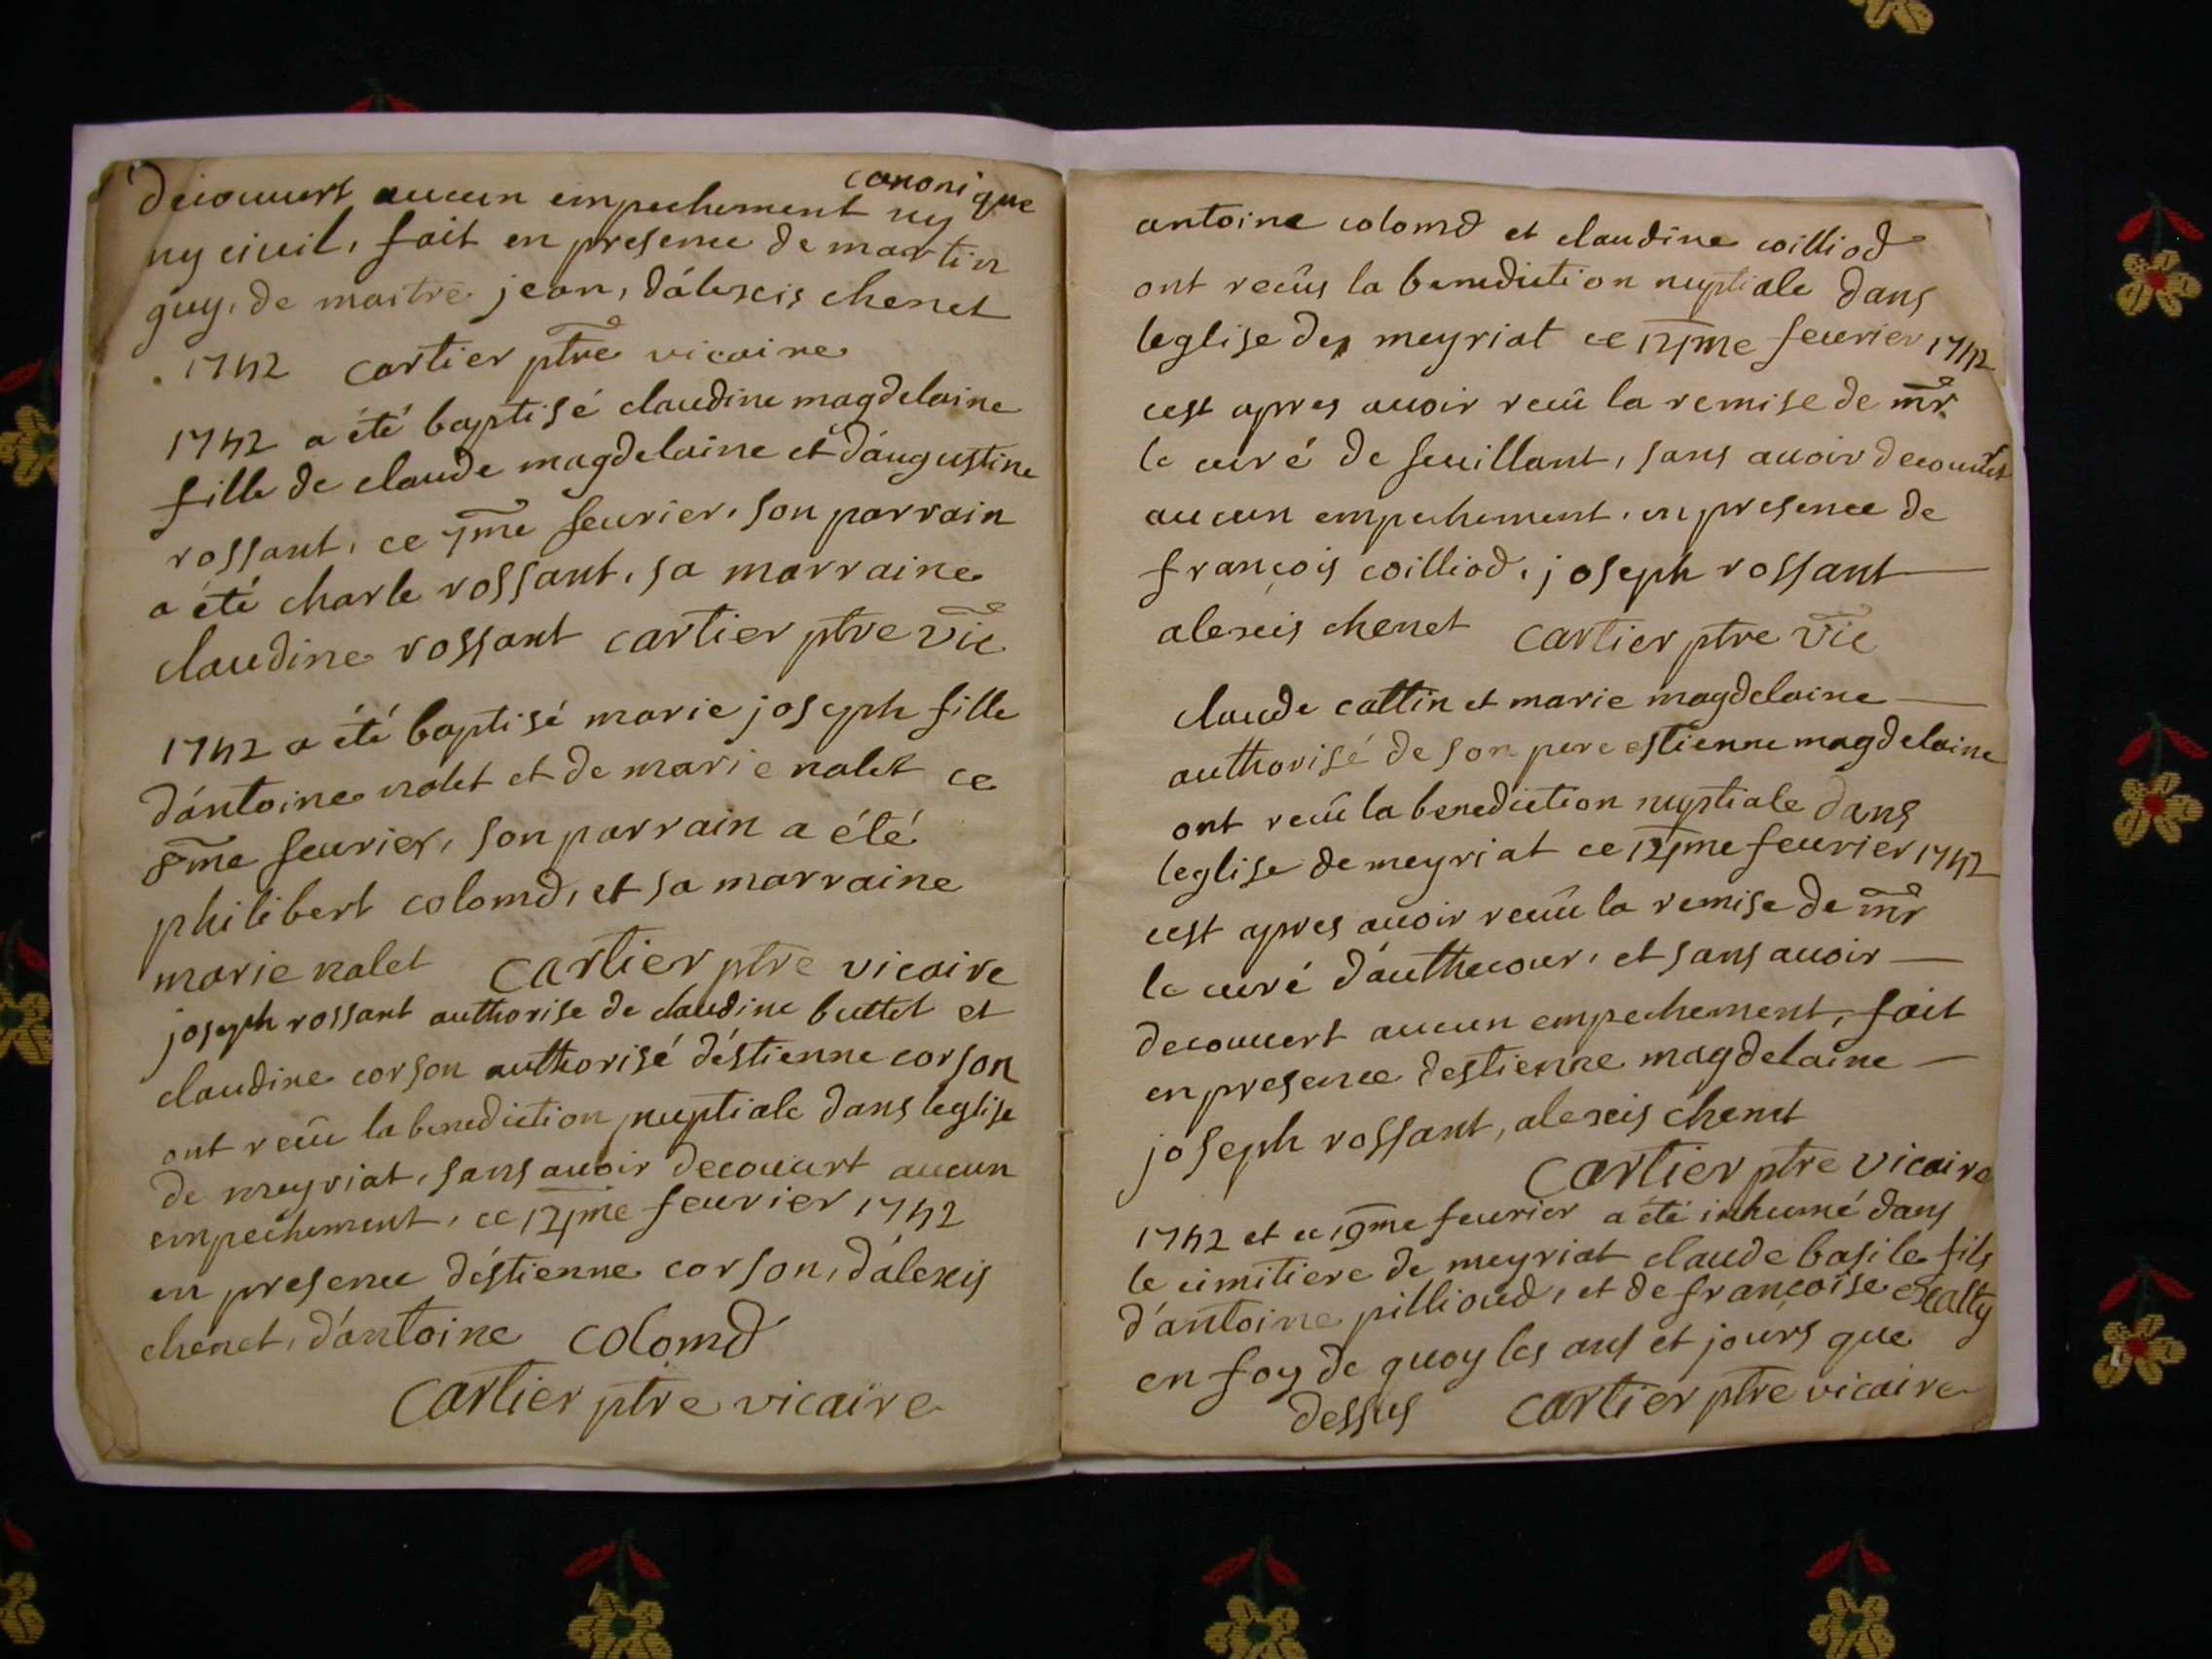 decouuert aucun empechement ny canonique
ny ciuil, fait en presence de martin
guy, de maitre jean, d'alexis chenet
1742 cartier ptre vicaire
1742 a été baptisé claudine magdelaine
fille de claude magdelaine et d'augustine
rossant, ce 7me feurier, son parrain
a été charle rossant, sa marraine
claudine rossant cartier ptre vic
1742 a été baptisé marie joseph fille
d'antoine nalet et de marie nalet ce
8me feurier, son parrain a été
philibert colomd, et sa marraine
marie nalet cartier ptre vicaire
joseph rossant authorise de claudine buttet et
claudine corson authorisé d'estienne corson
ont recû la benediction nuptiale dans leglise
de meyriat, sans auoir decouuert aucun
empechement, ce 12me feurier 1742
en presence d'estienne corson, d'alexis
chenet, d'antoine colomd
cartier ptre vicaire
antoine colomd et claudine coilliod
ont recûs la benediction nuptiale dans
leglise de meyriat ce 12me feurier 1742
cest apres auoir recû la remise de mr
le curé de seuillant, sans auoir decouuert
aucun empechement, en presence de
françois coilliod, joseph rossant
alexis chenet cartier ptre vic
claude cattin et marie magdelaine
authorisé de son pere estienne magdelaine
ont recû la benediction nuptiale dans
leglise de meyriat ce 12me feurier 1742
cest apres auoir recûu la remise de mr
le curé d'authecour, et sans auoir
decouuert aucun empechement, fait
en presence destienne magdelaine
joseph rossant, alexis chenet
cartier ptre vicaire
1742 et ce 19me feurier a été inhumé dans
le cimitiere de meyriat claude basile fils
d'antoine pillioud, et de françoise
en foy de quoy les ans et jours que
dessus cartier ptre vicaire